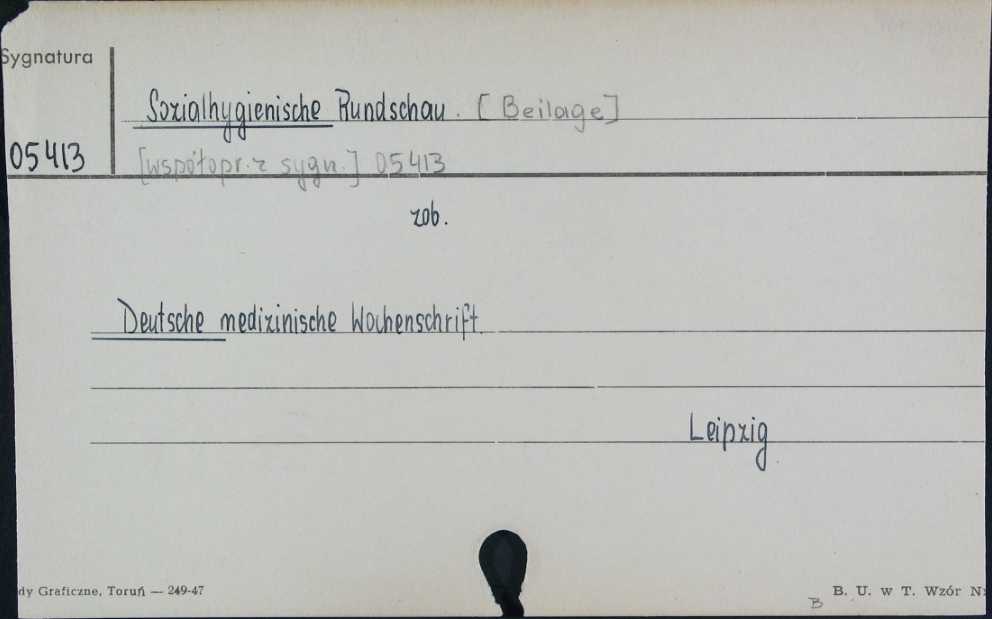 Sygnatura
Sozialhygienische Rundschau. [Beilage]
05413 [współopr. z sygn.] 05413
zob.
Deutsche medizinische Wochenschrift.
Leipzig
dy Graficzne, Toruń — 249-47
B. U. w T. Wzór N
B